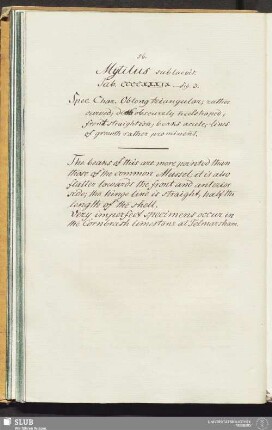 56.
Mytilus sublaevis.
Tab. CCCCXXXIX._fig. 3.
Spec. Char. Oblong triangular, rather
curved, obscurely wedgshaped;
front straightish; beaks acute; lines
of growth rather prominent.
The beaks of this are more pointed than
those of the common Mussel, it is also
flatter towards the front and anterior
side; the hinge line is straight, half the
length of the shell.
Very imperfect specimens occur in
the Cornbrash limestone at Felmersham.
SLUB